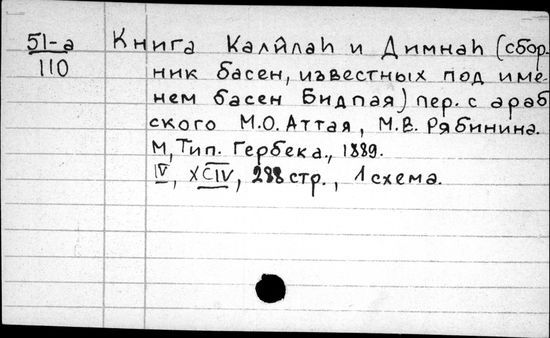 51-а
110
Книга Калӣлаh и Димнаh (сбор-
ник басен, известных под име-
нем басен Бидпая) пер. с араб
ского М.О. Аттая, М.В. Рябинина.
М, Тип. Гербека., 1889.
IV, XCIV, 288 стр., 1 схема.